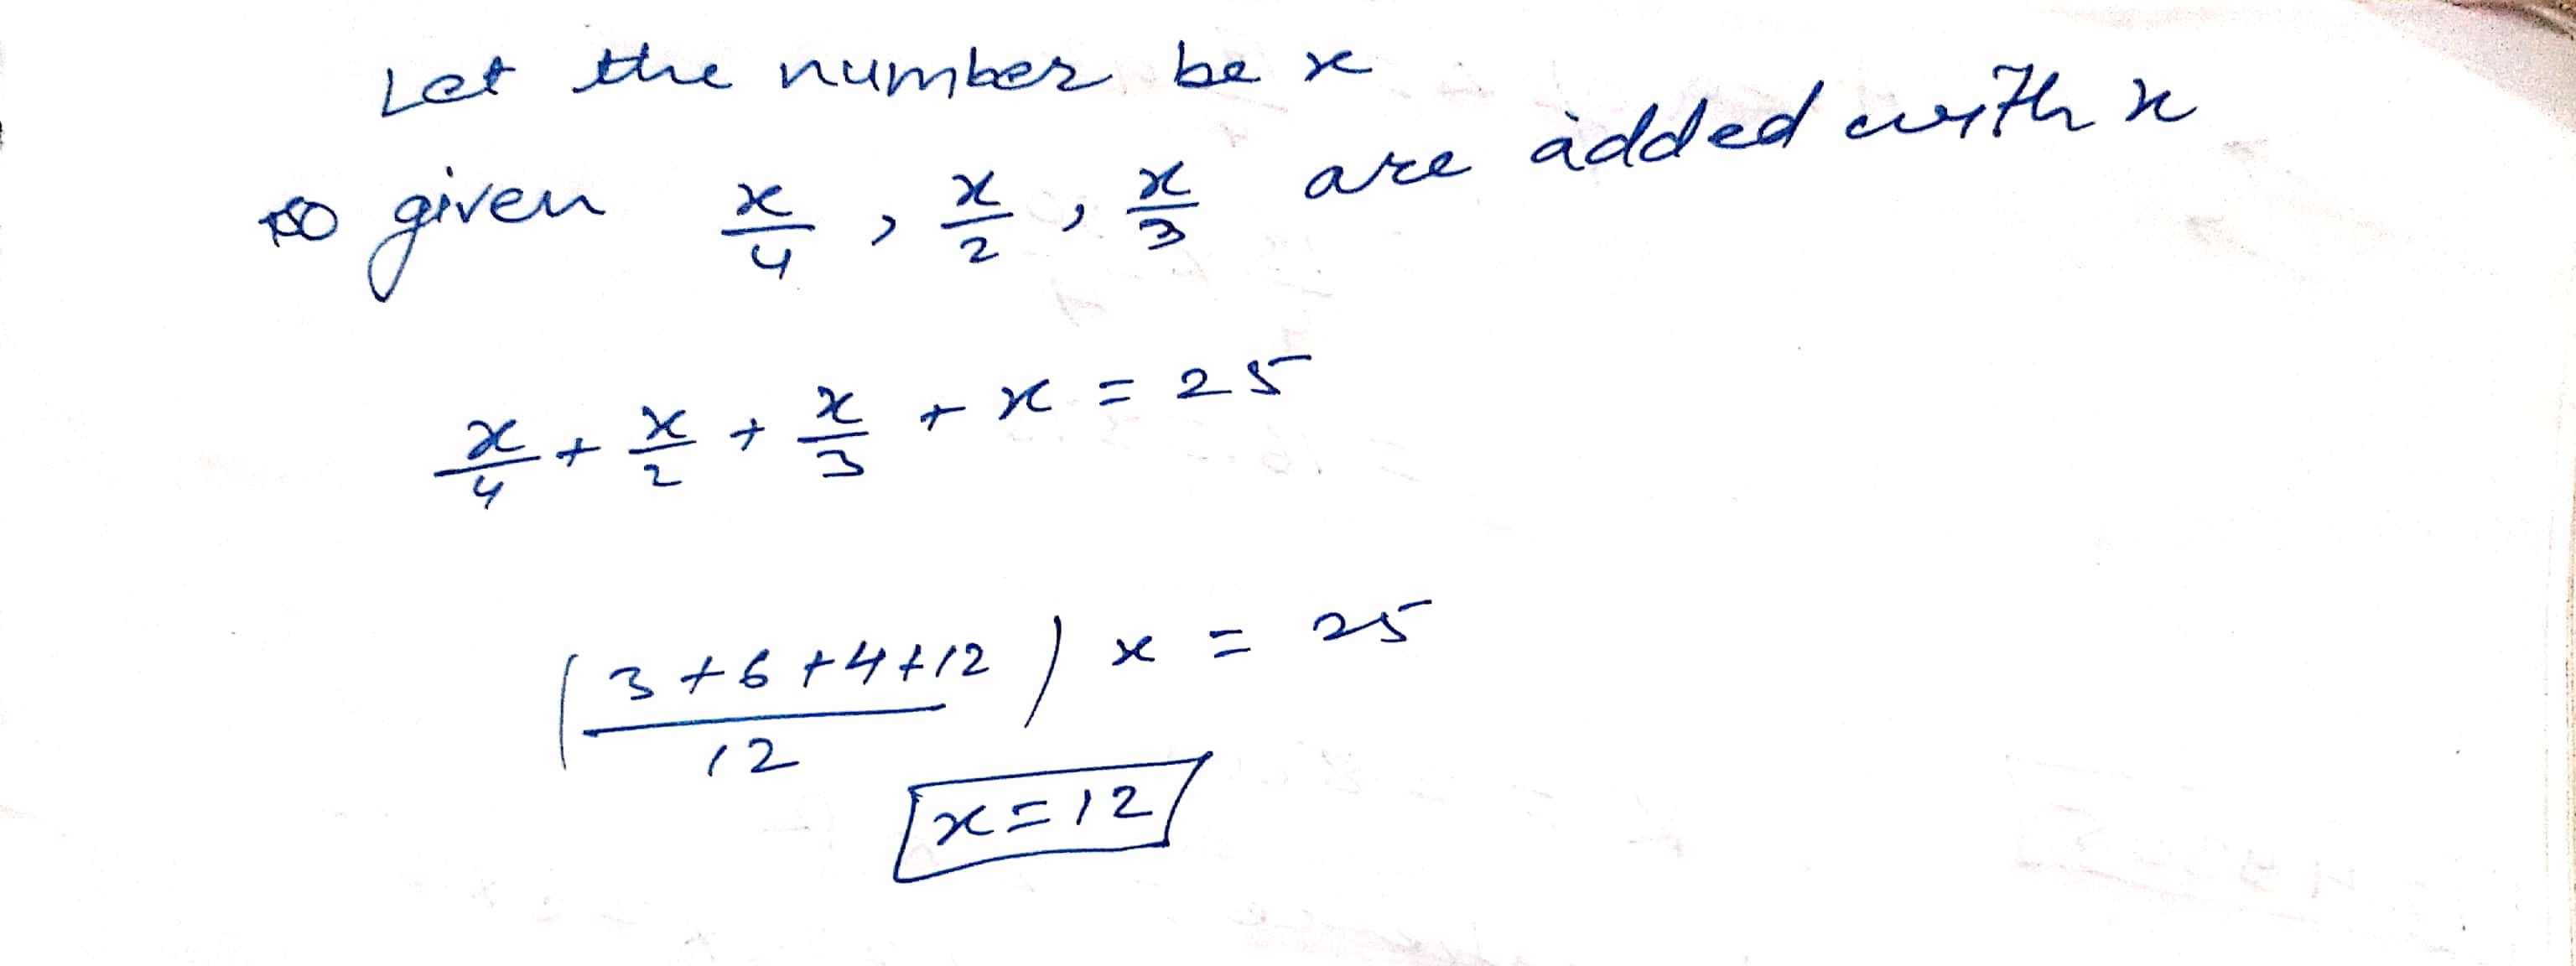 Let the number be x
so given x/4 , x/2 , x/3 are added with x
x/4 + x/2 + x/3 + x = 25
(3+6+4+12/12) x = 25
x=12